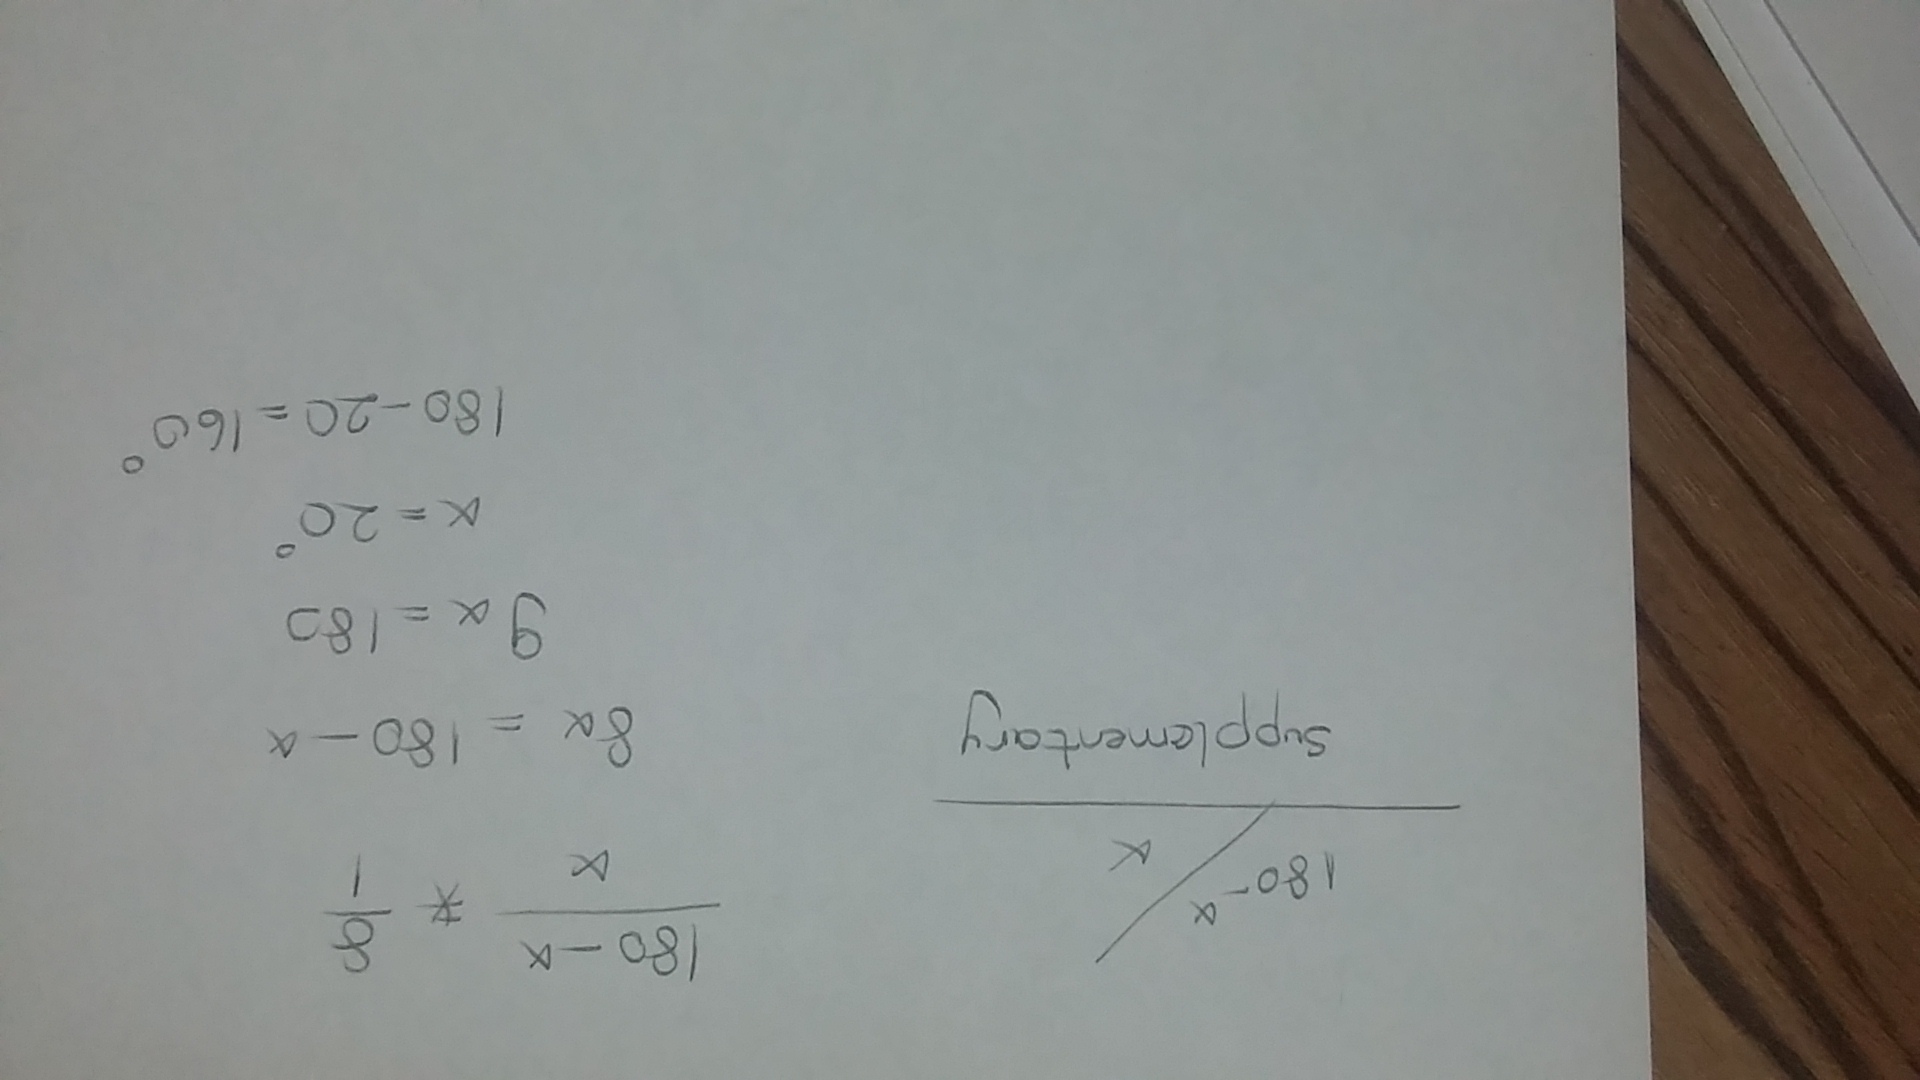 180-α
α
supplementary
180-α / α * 8/1
8α = 180-α
9α = 180
α = 20°
180-20 = 160°